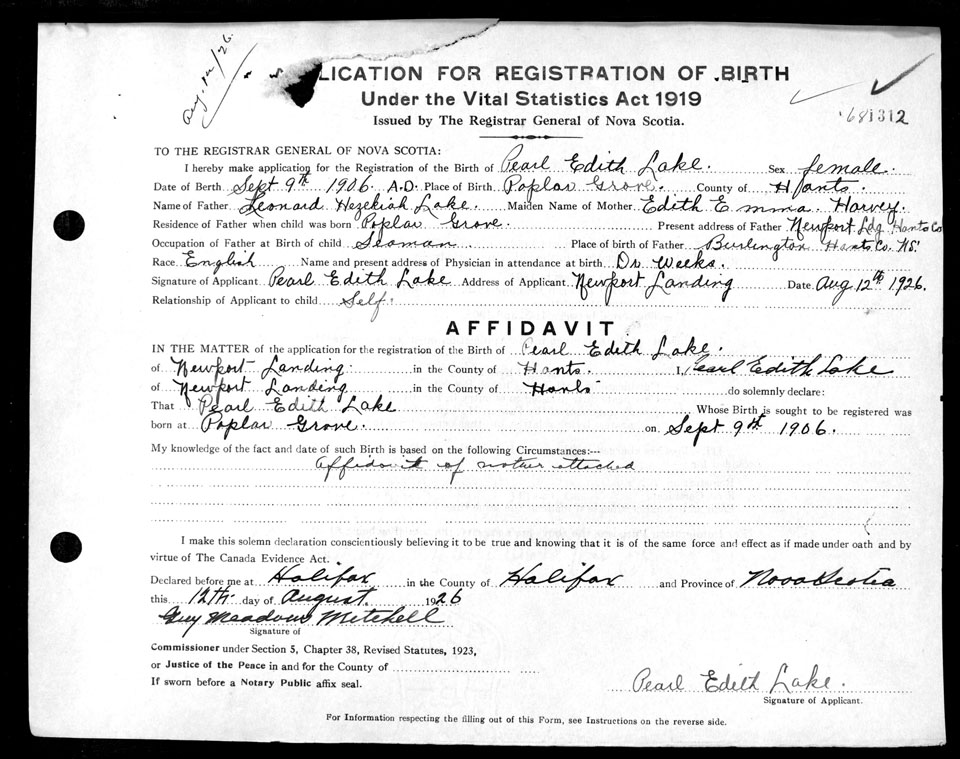 Aug. 12/26.
LICATION FOR REGISTRATION OF BIRTH
Under the Vital Statistics Act 1919
Issued by The Registrar General of Nova Scotia.
681312
TO THE REGISTRAR GENERAL OF NOVA SCOTIA:
I hereby make application for the Registration of the Birth of Pearl Edith Lake. Sex female.
Date of Berth Sept 9th 1906. A.D. Place of Birth Poplar Grove. County of Hants.
Name of Father Leonard Hezekiah Lake. Maiden Name of Mother Edith Emma Harvey.
Residence of Father when child was born Poplar Grove. Present address of Father Newport Ldg Hants Co
Occupation of Father at Birth of child Seaman Place of birth of Father Burlington Hants Co. N.S.
Race English Name and present address of Physician in attendance at birth Dr Weeks.
Signature of Applicant Pearl Edith Lake Address of Applicant Newport Landing Date Aug 12th 1926.
Relationship of Applicant to child Self.
AFFIDAVIT
IN THE MATTER of the application for the registration of the Birth of Pearl Edith Lake.
of Newport Landing in the County of Hants. I, Pearl Edith Lake
of Newport Landing in the County of Hants do solemnly declare:
That Pearl Edith Lake Whose Birth is sought to be registered was
born at Poplar Grove. on Sept 9th 1906.
My knowledge of the fact and date of such Birth is based on the following Circumstances:---
Affidavit of mother attached
I make this solemn declaration conscientiously believing it to be true and knowing that it is of the same force and effect as if made under oath and by
virtue of The Canada Evidence Act.
Declared before me at Halifax in the County of Halifax and Province of Nova Scotia
this 12th day of August 1926
Guy Meadows Mitchell
Signature of
Commissioner under Section 5, Chapter 38, Revised Statutes, 1923,
or Justice of the Peace in and for the County of
If sworn before a Notary Public affix seal.
Pearl Edith Lake.
Signature of Applicant.
For Information respecting the filling out of this Form, see Instructions on the reverse side.